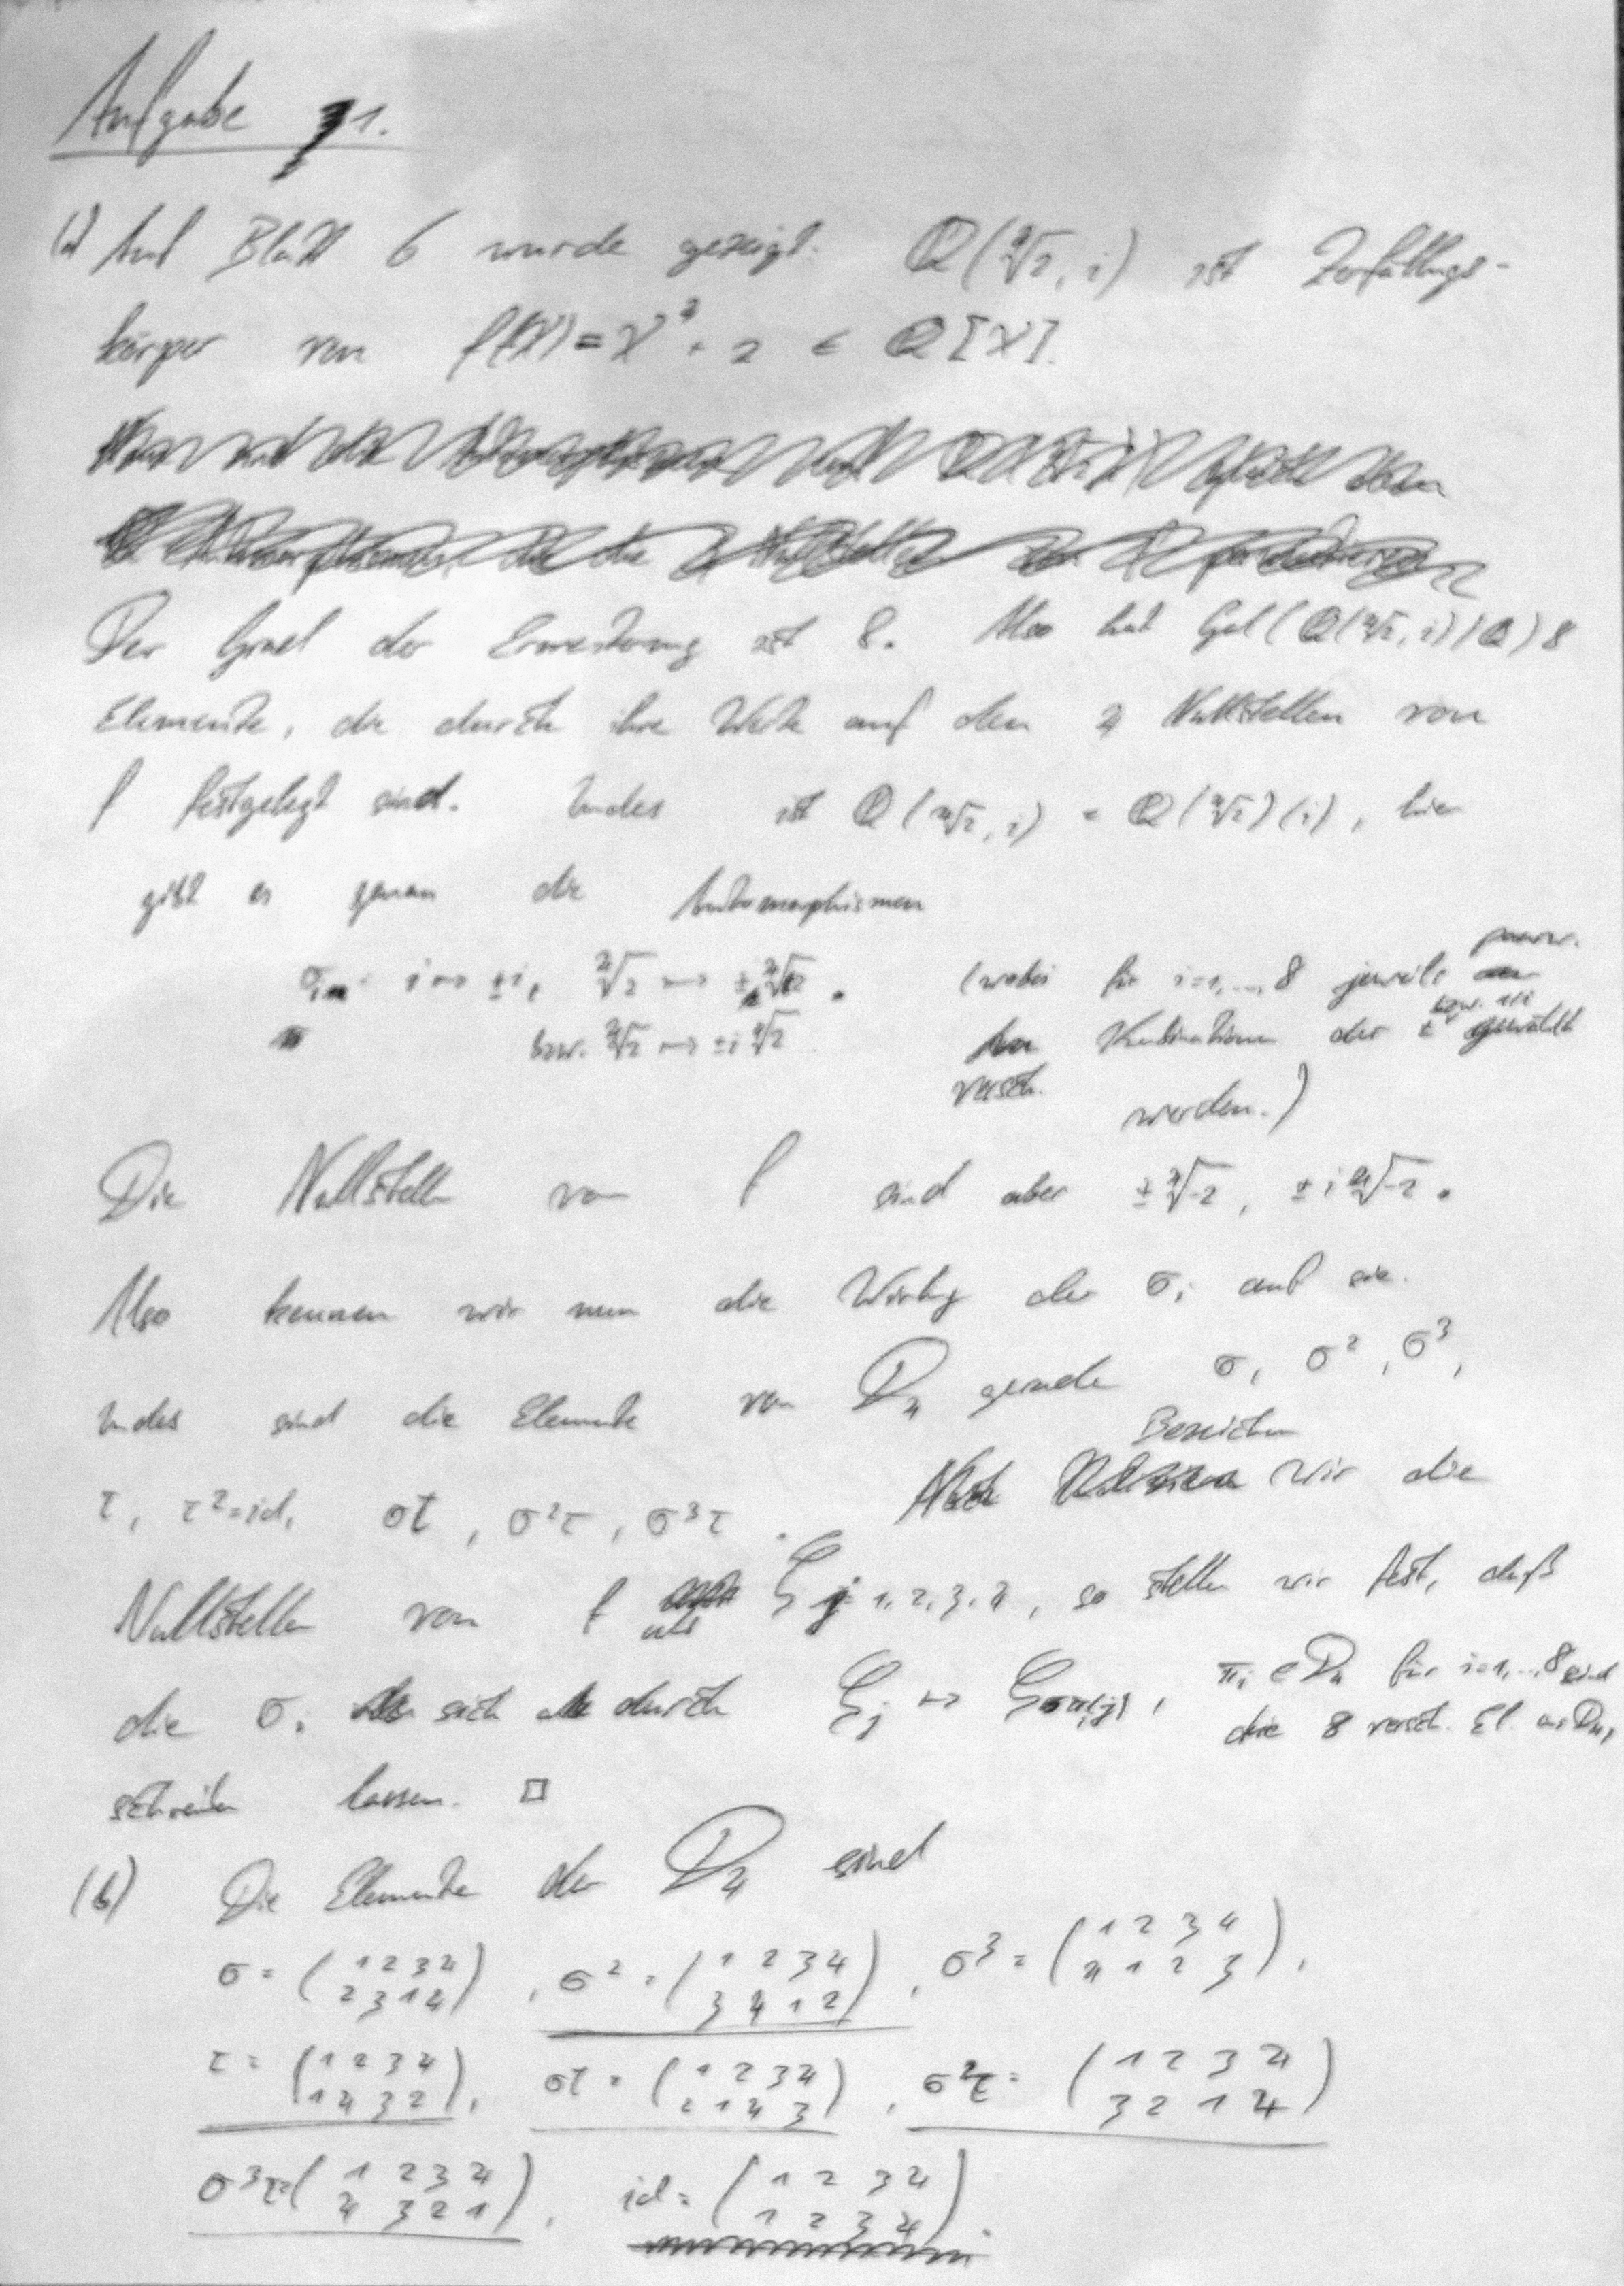 Aufgabe 31.
(a) Auf Blatt 6 wurde gezeigt: ℚ(∜2, i) ist Zerfällungs-
körper von f(X) = X⁴ + 2 ∈ ℚ[X].
Der Grad der Erweiterung ist 8. Also hat Gal(ℚ(∜2, i)/ℚ) 8
Elemente, die durch ihre Werte auf den 4 Nullstellen von
f festgelegt sind. Indes ist ℚ(∜2, i) = ℚ(∜2)(i), hier
gibt es genau die Automorphismen
i ↦ ±i, ∜2 ↦ ±∜2. (wobei für i=1,...,8 jeweils paarw.
bzw. ∜2 ↦ ±i∜2 versch. Kombinationen der ± bzw. 1/i gewählt
werden.)
Die Nullstellen von f sind aber ±∜-2, ±i∜-2.
Also kennen wir nun die Wirkung der σᵢ auf sie.
Indes sind die Elemente von D₄ gerade σ, σ², σ³,
τ, τ²=id, στ, σ²τ, σ³τ. Bezeichnen wir die
Nullstellen von f als ξ j=1,2,3,4, so stellen wir fest, daß
die σᵢ sich durch ξⱼ ↦ ξ, πᵢ ∈ D₄ für i=1,...,8 sind
die 8 versch. El. aus D₄,
schreiben lassen. □
(b) Die Elemente der D₄ sind
σ = (1 2 3 4 / 2 3 1 4), σ² = (1 2 3 4 / 3 4 1 2), σ³ = (1 2 3 4 / 4 1 2 3),
τ = (1 2 3 4 / 1 4 3 2), στ = (1 2 3 4 / 2 1 4 3), σ²τ = (1 2 3 4 / 3 2 1 4)
σ³τ = (1 2 3 4 / 4 3 2 1), id = (1 2 3 4 / 1 2 3 4).